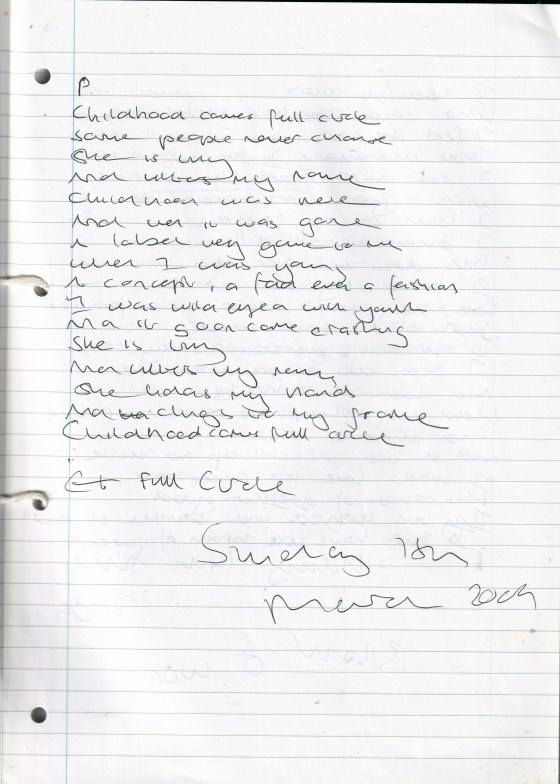 P.
Childhood comes full circle
same people never change
She is my
And my name
Childhood was here
And it was gone
A label they gave to me
when I was young
A concept, a fad even a fashion
I was wild eyed with youth
And it soon came crashing
She is my
And my name
She holds my hands
And clings to my frame
Childhood comes full circle
Full Circle
Sunday
March 2009